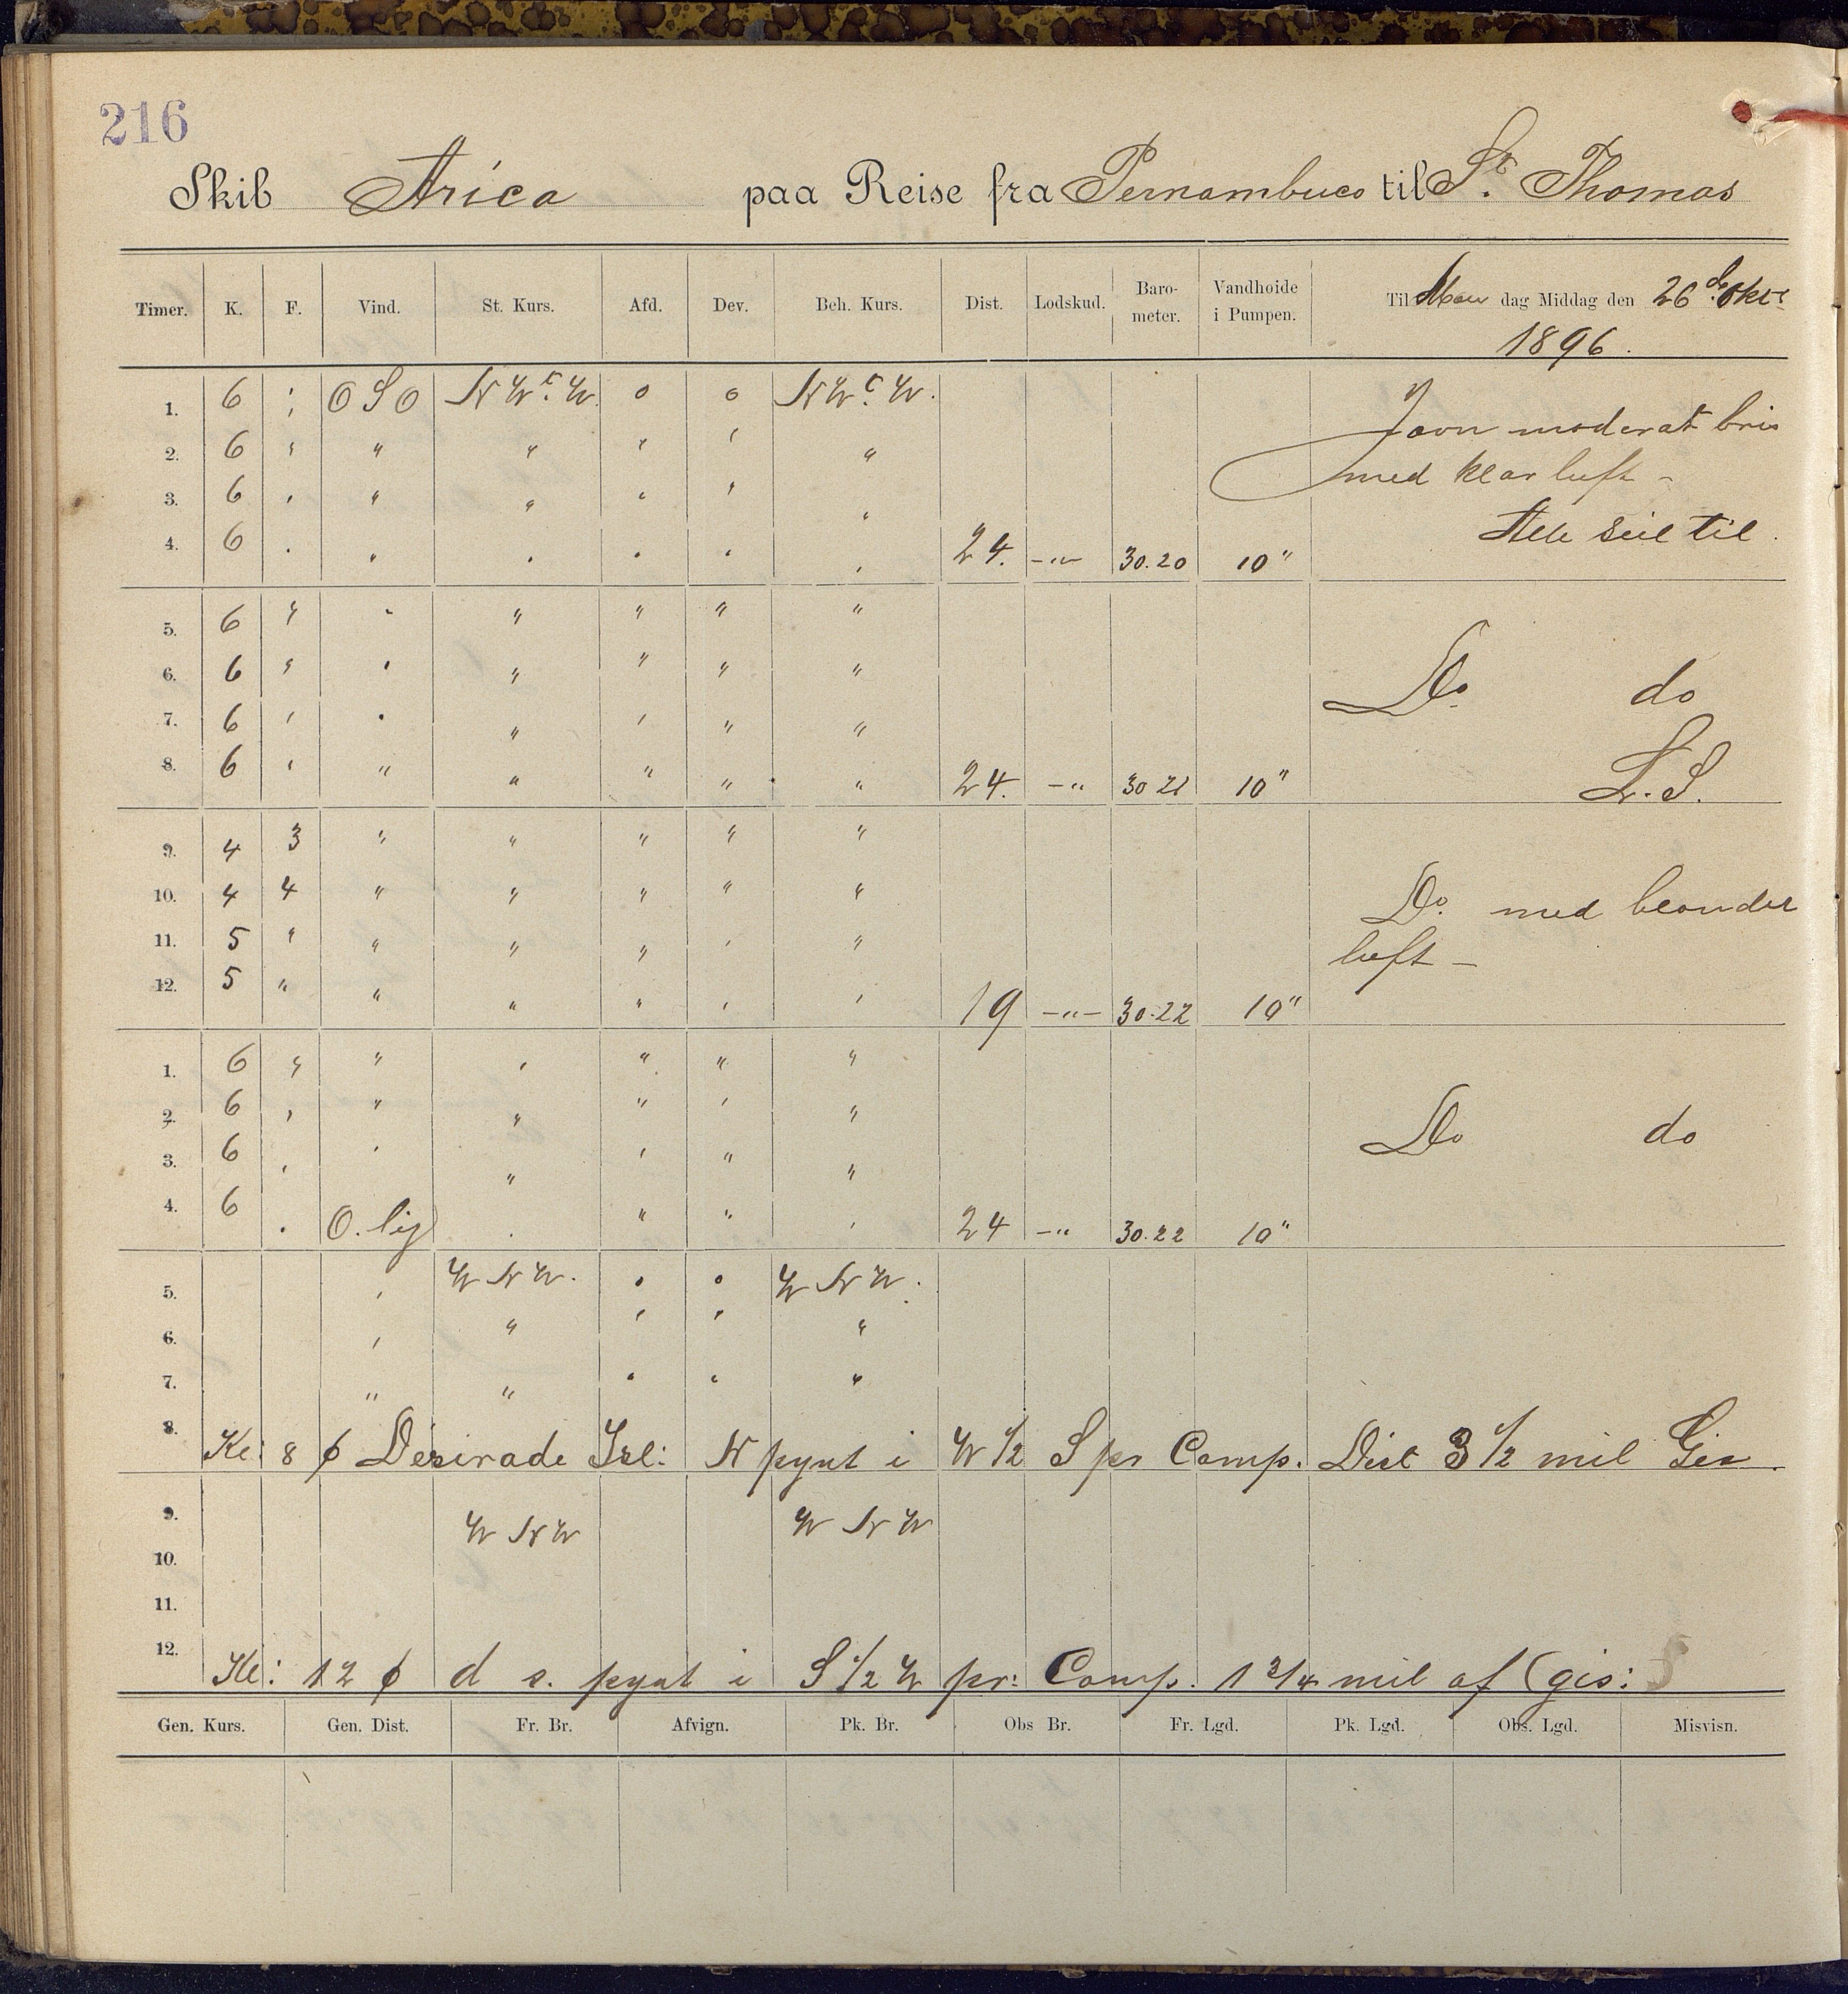 216
Skib Arica paa Reise fra Pernambuco til St. Thomas
Timer. K. F. Vind. St. Kurs. Afd. Dev. Beh. Kurs. Dist. Lodskud. Baro-meter. Vandhoide i Pumpen. Til Man dag Middag den 26de Oktr
1896.
1. 6 " OSO NWtW. o o NWtW.
Jævn moderat bris
2. 6 " " " " " "
med klar luft -
3. 6 " " " " " "
Alle seil til.
4. 6 " " " " " " 24. -"- 30.20 10"
5. 6 " " " " " "
6. 6 " " " " " "
Do do
7. 6 " " " " " "
8. 6 " " " " " " 24. -" 30 21 10" L.S.
9. 4 3 " " " " "
10. 4 4 " " " " "
Do. med blandet
11. 5 " " " " " "
luft -
12. 5 " " " " " " 19 -"- 30.22 10"
1. 6 " " " " " "
2. 6 " " " " " "
Do do
3. 6 " " " " " "
4. 6 " O.lig " " " " 24 -" 30.22 10"
5. " WNW. o o WNW.
6. " " " " "
7. " " " " "
8. Kl: 8 ϕ Desirade Isl: N pynt i W 1/2 S pr Comp. Dist 3 1/2 mil Gis.
9. WNW WNW
10.
11.
12. Kl: 12 ϕ d s. pynt i S 1/2 W pr: Comp. 1 3/4 mil af (gis:
Gen. Kurs. Gen. Dist. Fr. Br. Afvign. Pk. Br. Obs Br. Fr. Lgd. Pk. Lgd. Obs. Lgd. Misvisn.